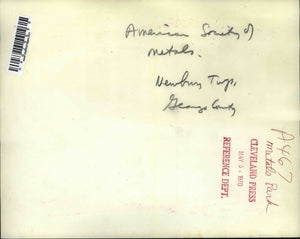 American Society of
Metals.
Newbury Twp,
Geauga County
A467
Metals Park
CLEVELAND PRESS
MAY 5 - 1970
REFERENCE DEPT.